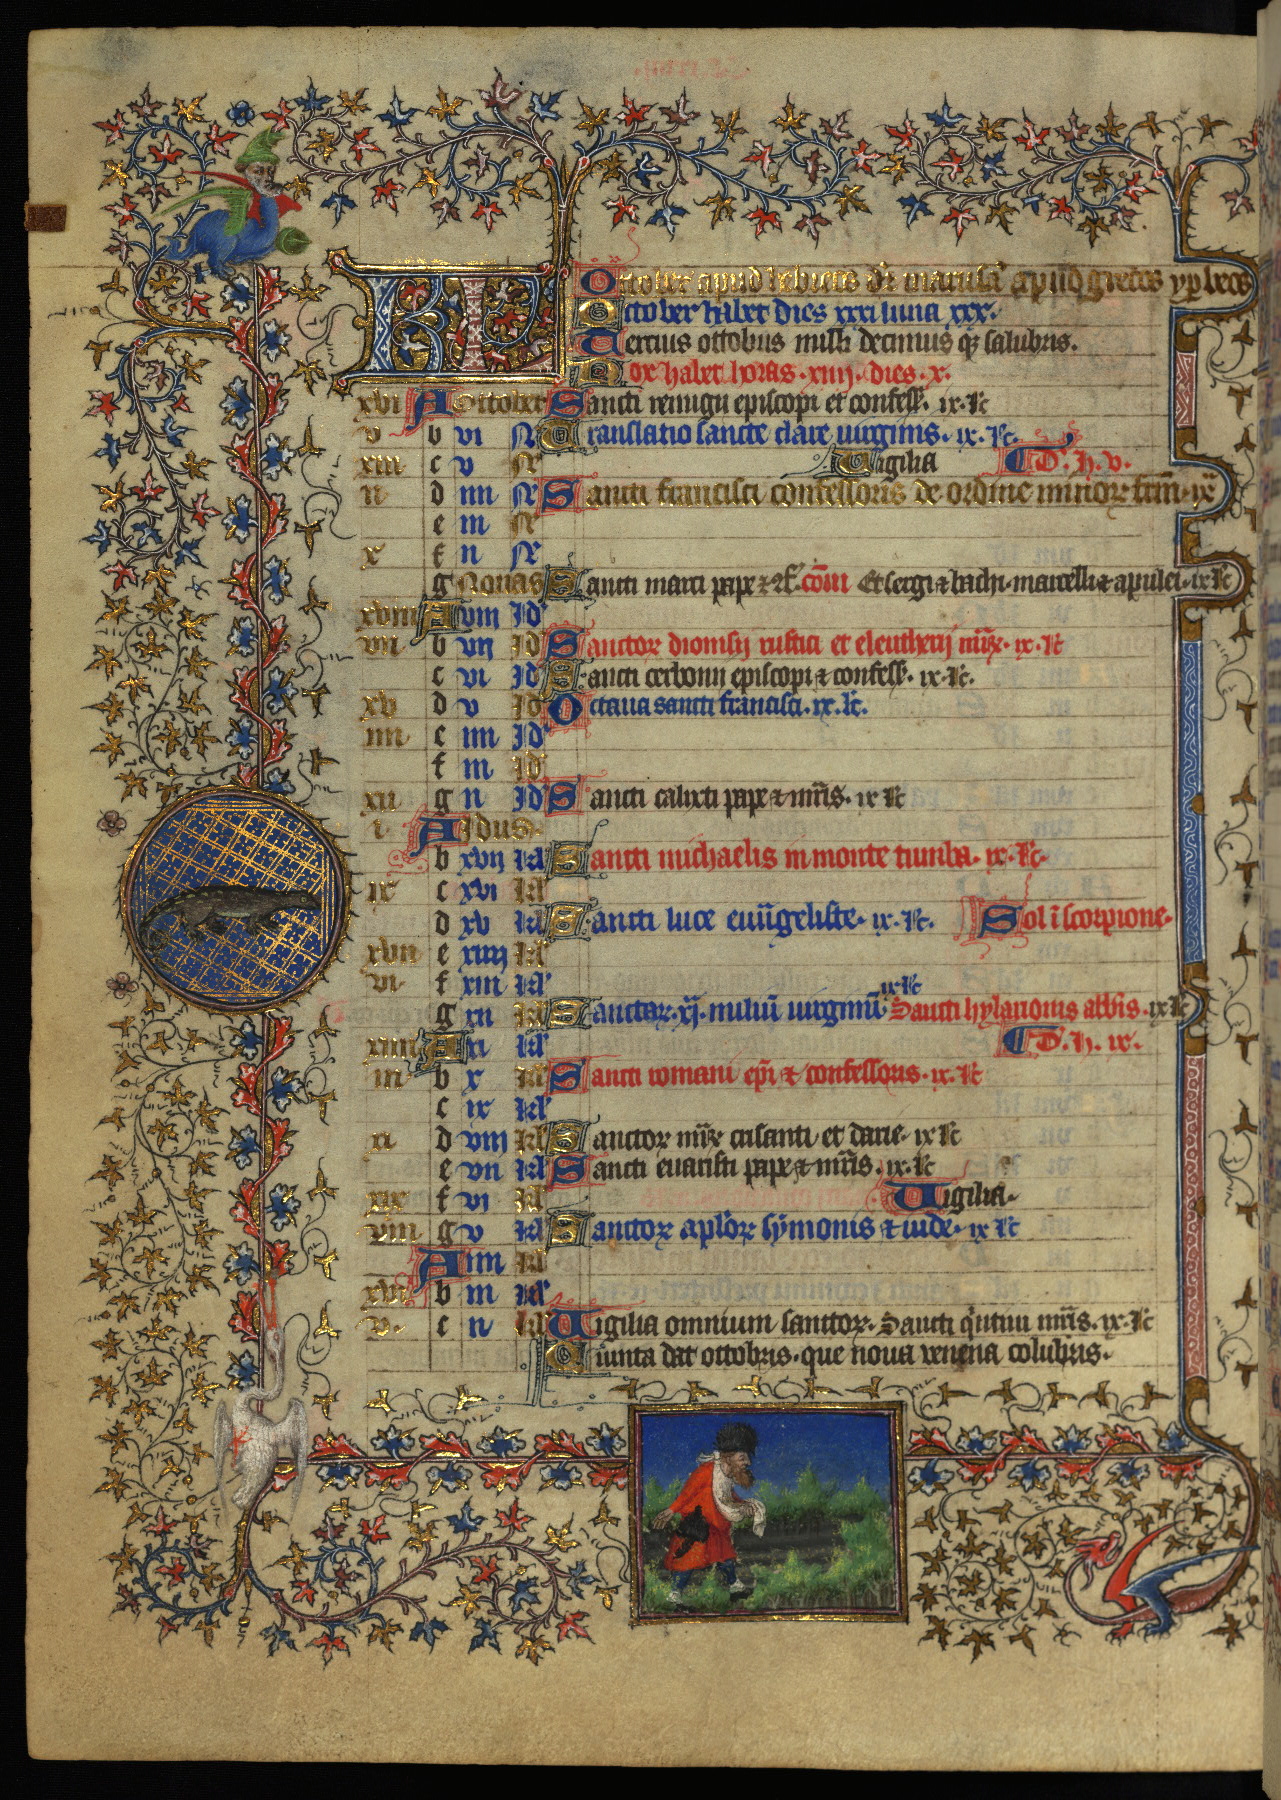 KL
October apud hebreos dr̄ marusa apud grecos yp̄breos
October habet dies xxxi luna xxx.
Tercius octobus miss decimus q̄ salubris.
Nox habet horas .xiiij. dies .x.
xvi A October Sancti remigii episcopi et confess. ix. lc̄
v b vi N Translatio sancte clare virginis. ix. lc̄.
xiii c v N Vigilia D. h. v.
ii d iiii N Sancti francisci confessoris de ordine minor fr̄m. ix
e iii N
x f ii N
g Nonas Sancti marci pape & 9f. com̄ Et sergi & bachi. marcelli & apulei. ix lc̄
xviii A viii Id
vii b vii Id Sanctor dionisij rustici et eleutherij mr̄. ix. lc̄
c vi Id Sancti cerbonii episcopi & confess. ix. lc̄.
xv d v Id Octaua sancti francisci. ix. lc̄.
iiii e iiii Id
f iii Id
xii g ii Id Sancti calixti pape & mr̄is. ix lc̄
i. A Idus
b xvii kl Sancti michaelis in monte tumba. ix. lc̄.
ix c xvi kl
d xv kl Sancti luce euu̅geliste. ix. lc̄. Sol ī scorpione.
xvii e xiiii kl
vi. f xiii kl
ix lc̄
g xii kl Sanctar. xj. miliū uirginū Sancti hylarionis abb̄is. ix lc̄
xiiii A xi kl D. h. ix.
iii b x kl Sancti romani ep̄i & confessoris. ix. lc̄
c ix kl
xi d viii kl Sanctor mr̄ crisanti et darie. ix lc̄
e vii kl Sancti euaristi pape & mr̄is. ix. lc̄
xix f vi kl Vigilia.
viii g v kl Sanctor ap̄lor symonis & iude. ix lc̄
A iiii kl
xvi b iii kl
v. c ii kl Vigilia omnium sanctor. Sancti q̄ntini mr̄is. ix. lc̄
Quinta dat octobris. que noua venena colubris.